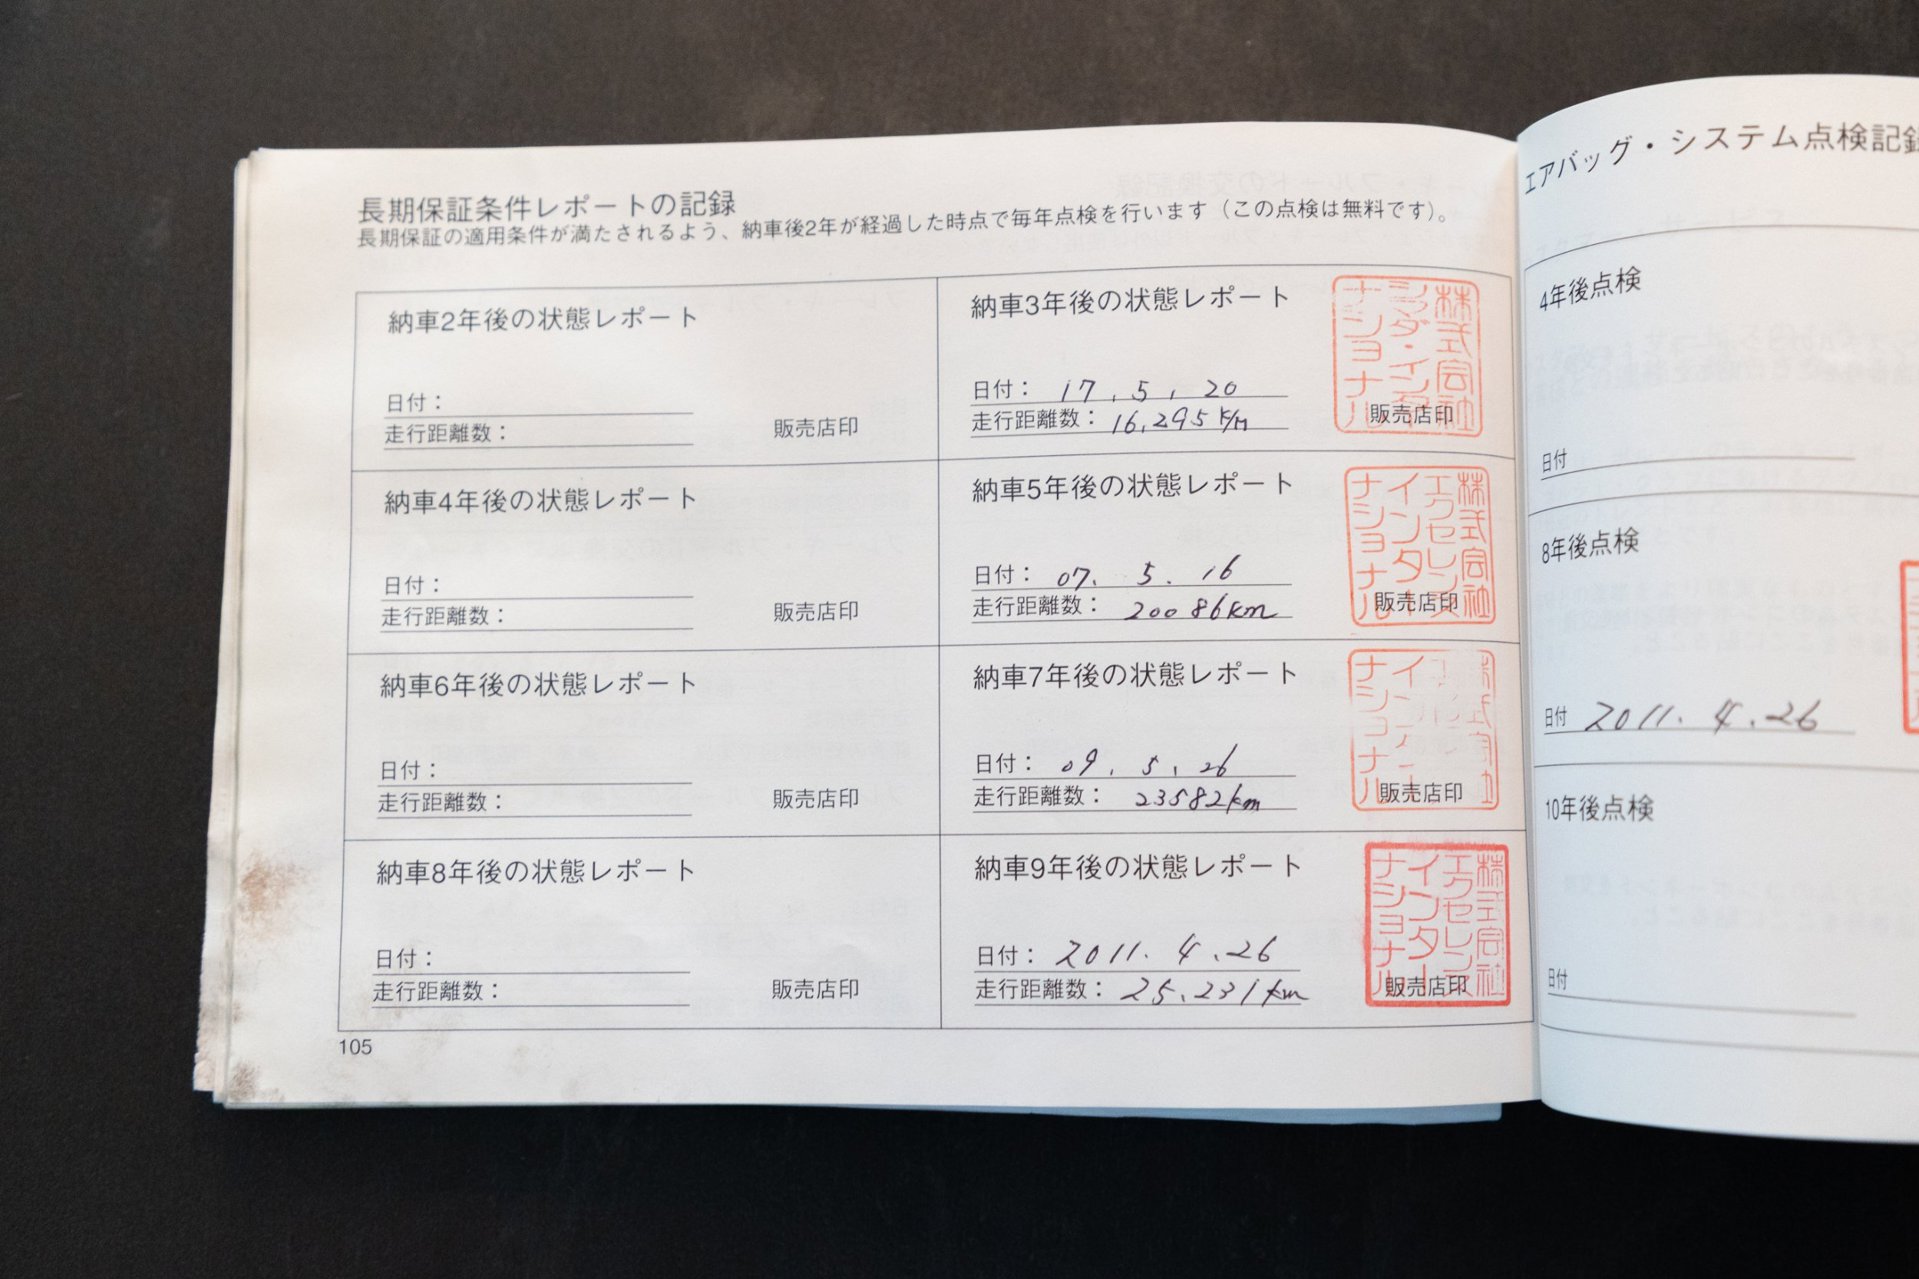 長期保証条件レポートの記録
長期保証の適用条件が満たされるよう、納車後2年が経過した時点で毎年点検を行います（この点検は無料です）。
納車2年後の状態レポート
日付：
走行距離数：
販売店印
納車3年後の状態レポート
日付： 17. 5. 20
走行距離数： 16,295 K/M
販売店印
納車4年後の状態レポート
日付：
走行距離数：
販売店印
納車5年後の状態レポート
日付： 07. 5. 16
走行距離数： 20086km
販売店印
株式会社
エクセレンス
インター
ナショナル
納車6年後の状態レポート
日付：
走行距離数：
販売店印
納車7年後の状態レポート
日付： 09. 5. 26
走行距離数： 23582km
販売店印
納車8年後の状態レポート
日付：
走行距離数：
販売店印
納車9年後の状態レポート
日付： 2011. 4. 26
走行距離数： 25.231km
販売店印
株式会社
エクセレンス
インター
ナショナル
105
エアバッグ・システム点検記録
4年後点検
日付
8年後点検
日付 2011. 4. 26
10年後点検
日付